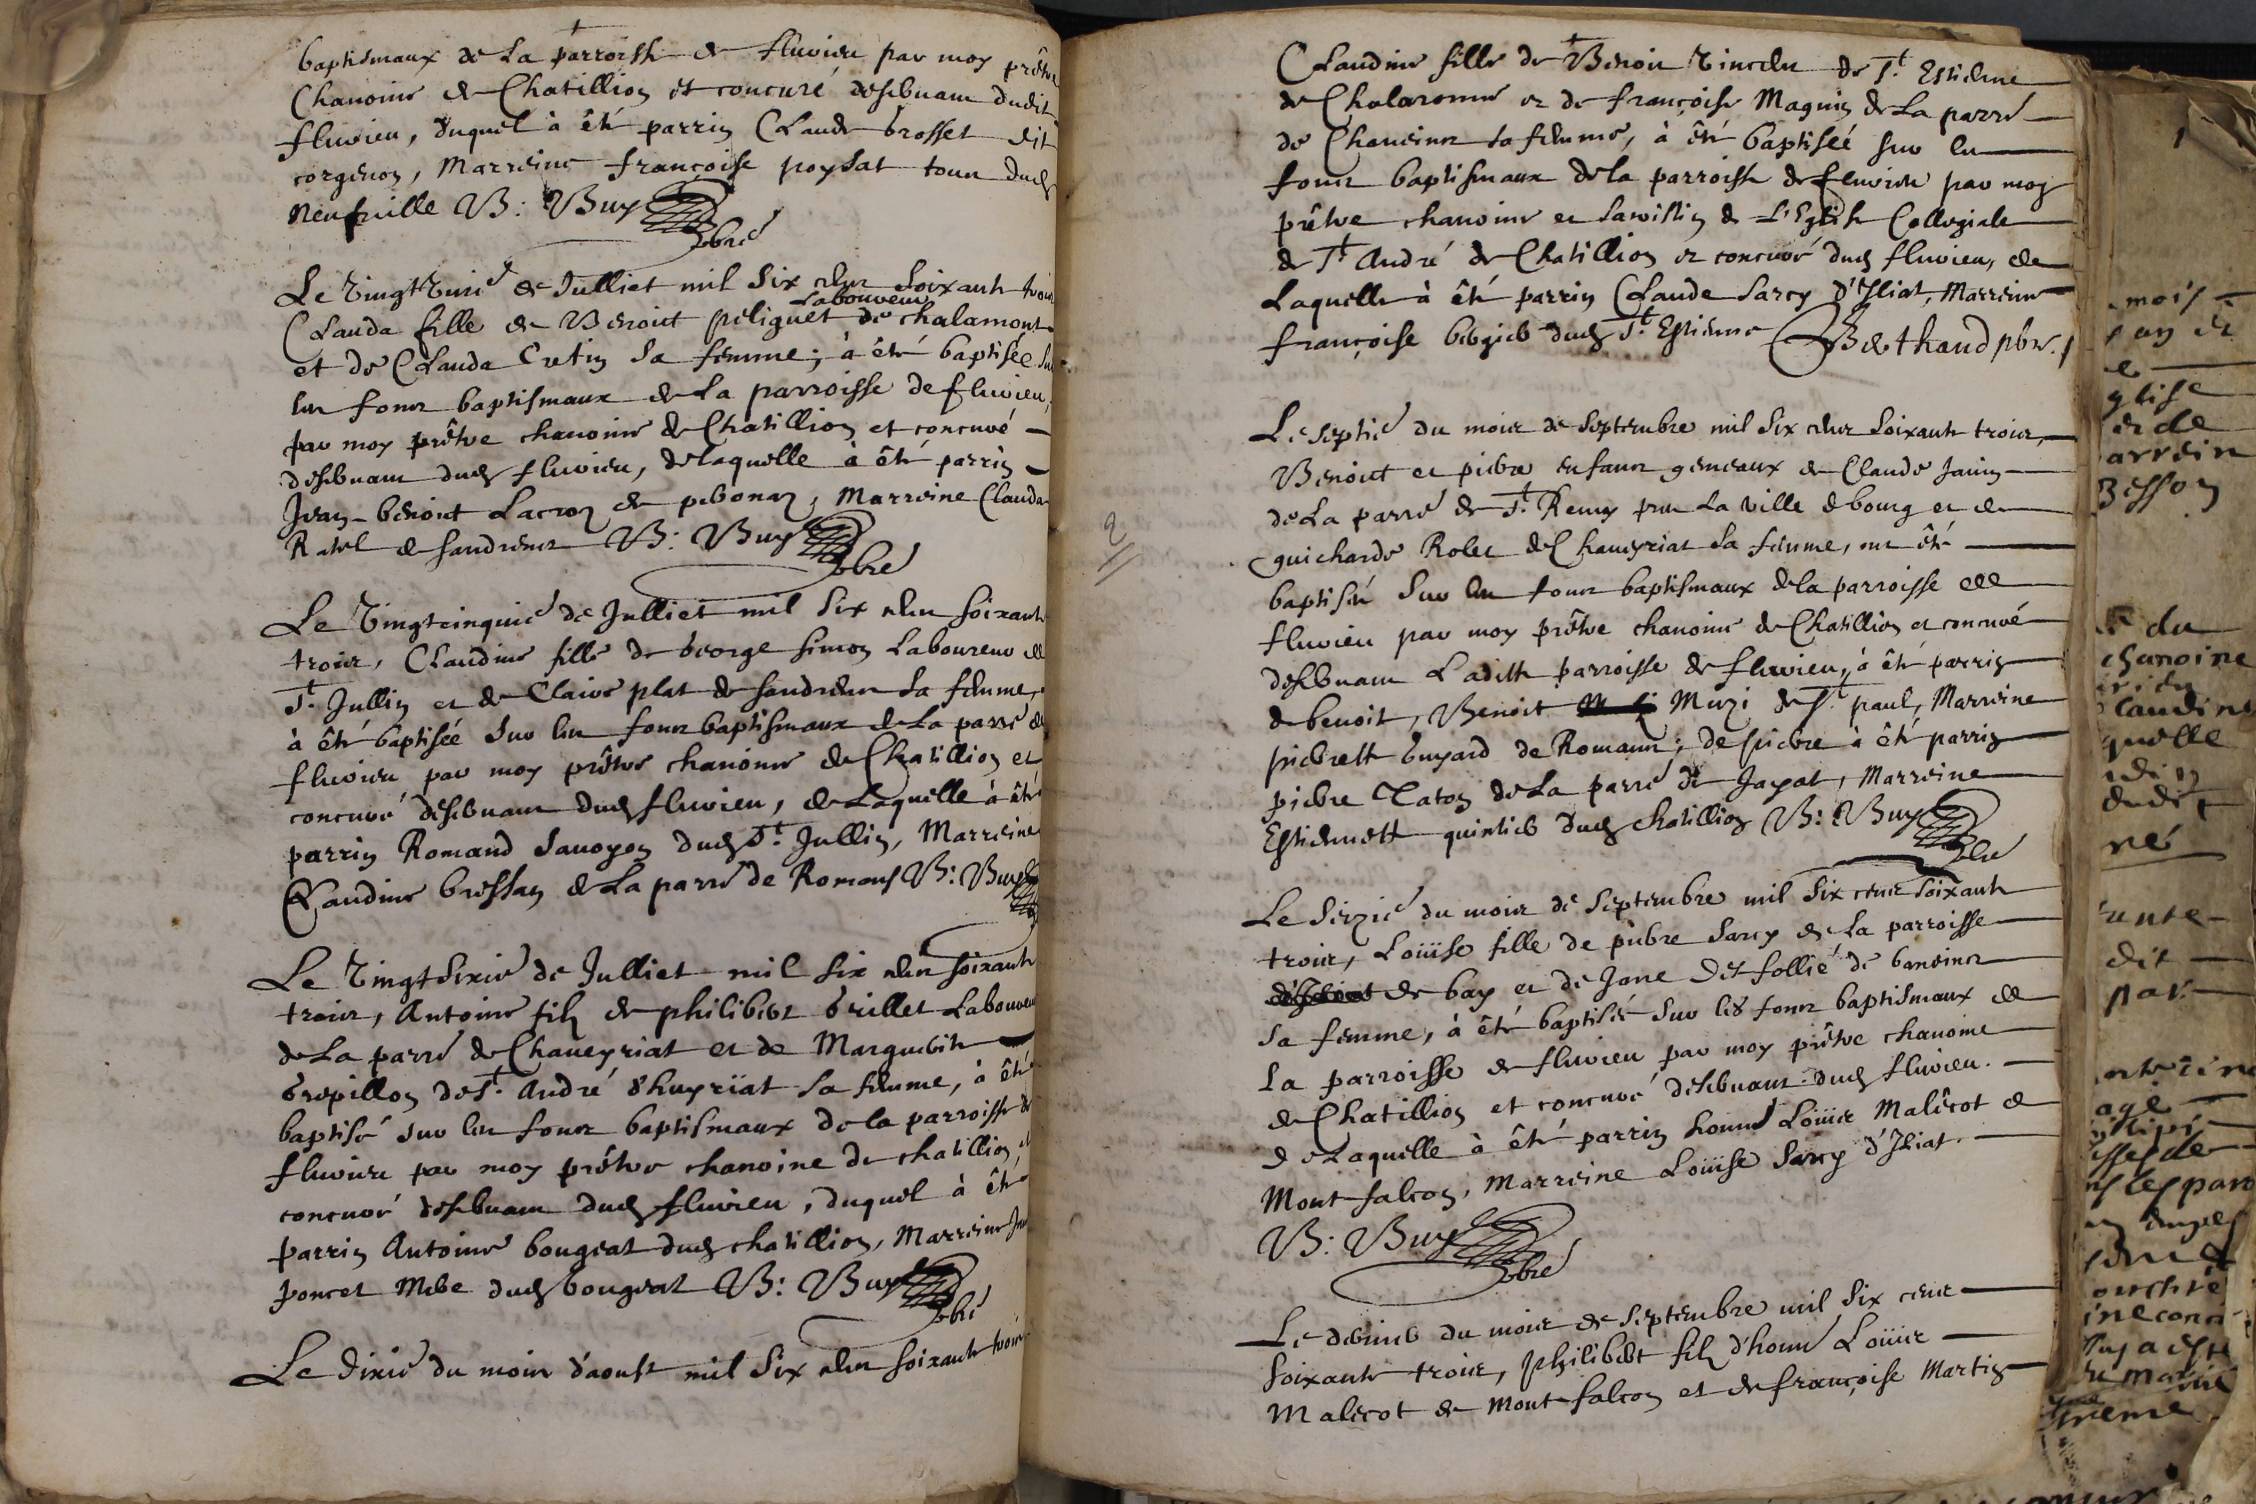 baptismaux de La parroisse de fluvieu par moy prêtre
Chanoine de Chatillion et concuré deservant dudit
fluvieu, duquel à êté parrin Claude brosset dit
corgenon, Marreine françoise poysat tous dud
Neufville B: Buy
pbre
Le vingt unie de Julliet mil six cens soixante trois
Laboureur
Clauda fille de Benoict peliguet de chalamont
et de Clauda Cretin sa femme; à êté baptisée sur
les fons baptismaux de La parroisse de fluvieu,
par moy prêtre chanoine de Chatillion et concuré
deservant dud fluvieu, de laquelle à êté parrin
Jean-benoict Lacroy de peronaz, Marreine Clauda
Ravel de sandrens B: Buy
pbre
Le vingtcinquie de Julliet mil six cens soixante
trois, Claudine fille de George simon Laboureur de
St. Jullin et de Claire plat de sandrens sa femme,
à êté baptisée sur les fons baptismaux de La parre de
fluvieu par moy prêtre chanoine de Chatillion et
concuré deservant dud fluvieu, de Laquelle à êté
parrin Romand Savoyen dud St. Jullin, Marreine
Claudine bressan de La parre de Romans B: Buy
Le vingt sixie de Julliet mil six cens soixante
trois, Antoine filz de philibert Grillet Laboureur
de La parre de Chaneyriat et de Marguerite
Grepillon de St. André d'huyriat sa femme, à êté
baptisé sur les fons baptismaux de la parroisse de
fluvieu par moy prêtre chanoine de chatillion, et
concuré deservant dud fluvieu, duquel à êté
parrin Antoine bougeat dud chatillion, Marreine
poncet Mere dud bougeat B: Buy
pbre
Le dixie du mois d'aoust mil six cens soixante trois
Claudine fille de Benoit Vincelu de St. Estienne
de Chalaronne et de françoise Maguin de La parre
de Chaneins sa femme, à êté baptiseé sur les
fons baptismaux de la parroisse de fluvieu par moy
prêtre chanoine et sacristin de L'Eglise Collegiale
de St André de Chatillion et concuré dud fluvieu, de
Laquelle à êté parrin Claude sarcy d'Illiat, Marreine
françoise bergier dud St. Estienne Berthaud pbre.
Le septie du mois de septembre mil six cens soixante trois,
Benoict et pierre enfans gemeaux de Claude Janin
de La parre de St. Remy pres La ville de bourg et de
guicharde Rolet de Chaneyriat sa femme, ont êté
baptisés sur les fons baptismaux de la parroisse de
fluvieu par moy prêtre chanoine de Chatillion et concuré
deservant Ladite parroisse de fluvieu, à êté parrin
de benoit, Benoit Muzi de St. paul, Marreine
pierrette Guyard de Romans; de pierre à êté parrin
pierre Taton de La parre de Jayat, Marreine
Estiennette quintier dud chatillion B: Buy
pbre
Le seizie du mois de septembre mil six cens soixante
trois, Loüise fille de pierre sarcy de La parroisse
de bay et de Jane Des follié de baneins
sa femme, à êté baptisée sur les fons baptismaux de
La parroisse de fluvieu par moy prêtre chanoine
de Chatillion et concuré deservant dud fluvieu.
De Laquelle à êté parrin honn Loüis Malêcot de
Montfalcon, Marreine Loüise Sarcy d'Iliat.
B: Buy
pbre
Le dernier du mois de septembre mil six cens
soixante trois, philibert filz d'honn Loüis
Malecot de Montfalcon et de françoise Martin